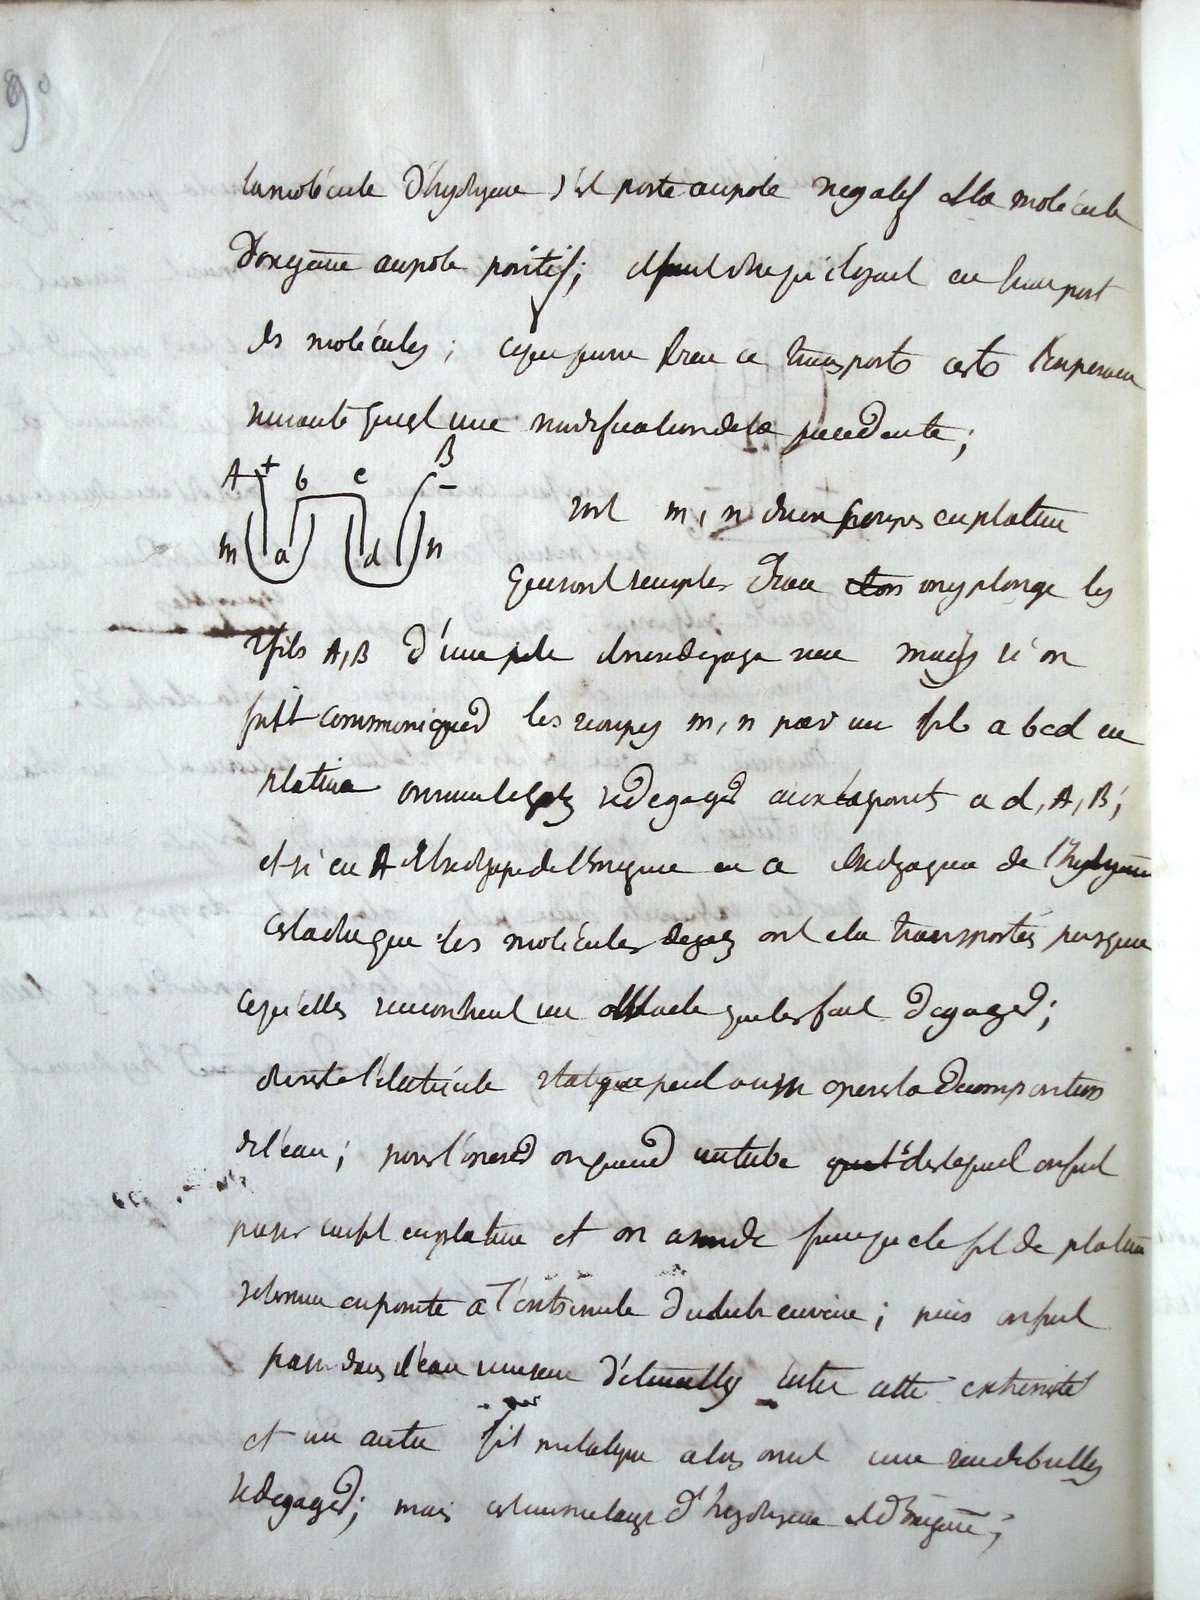 9°
la molécule d'hydrogene s'est porte au pole negatif et la molécule
d'oxygene au pole positif; il faut donc qu'il y ait eu transport
des molécules; ce qui prouve bien ce transporte c'est l'experience
suivante qui est une modification de la precedente;
A + b c B −
m a d n
soit m, n deux coupes en platine
qui sont remplies d'eau on y plonge les
2 fils A, B d'une pile il ne se degage rien mais si on
fait communiquer les coupes m, n par un fil a b c d en
platine on voit le gaz se degager aux points a d, A, B;
et si en A il se degage de l'oxigene en a il se degagera de l'hydrogene
c'est a dire que les molécules de gaz ont ete transportés jusque
ce qu'elles rencontrent un obstacle qui les fait degager;
ensuite l'électricité statique peut aussi operer la decomposition
de l'eau; pour l'operer on prend un tube dans lequel on fait
passer un fil en platine et on a soin de faire que le fil de platine
se termine en pointe a l'extremité du tube en verre; puis on fait
passer dans l'eau une serie d'étincelles entre cette extremité
et un autre fil metalique alors on voit une serie de bulles
se degager; mais c'est un melange d'hydrogene et d'oxigene;